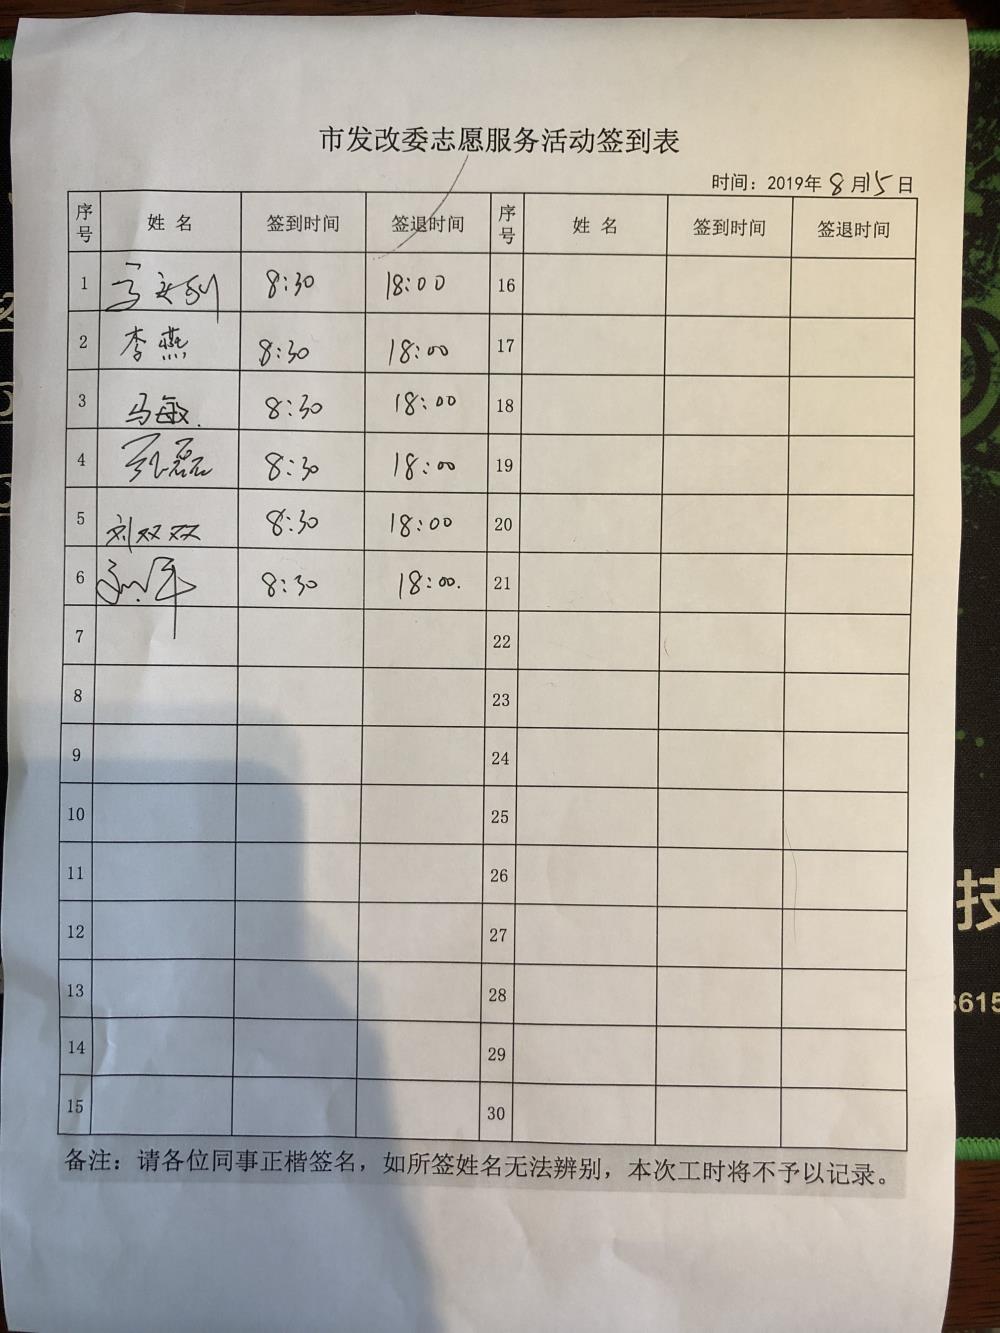 市发改委志愿服务活动签到表
时间：2019年8月15日
序号 姓 名 签到时间 签退时间 序号 姓 名 签到时间 签退时间
1 8:30 18:00 16
2 李燕 8:30 18:00 17
3 马敏. 8:30 18:00 18
4 张磊 8:30 18:00 19
5 刘双双 8:30 18:00 20
6 8:30 18:00. 21
7 22
8 23
9 24
10 25
11 26
12 27
13 28
14 29
15 30
备注：请各位同事正楷签名，如所签姓名无法辨别，本次工时将不予以记录。
技
3615